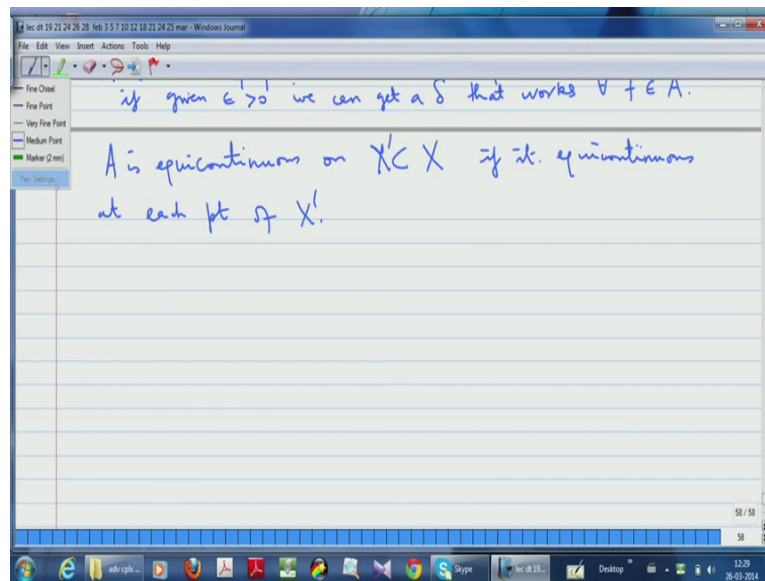 lec dt 19 21 24 26 28 feb 3 5 7 10 12 18 21 24 25 mar - Windows Journal
File Edit View Insert Actions Tools Help
Fine Chisel
Fine Point
Very Fine Point
Medium Point
Marker (2 mm)
Pen Settings...
if given ε'>0 we can get a δ that works ∀ f ∈ A.
A is equicontinuous on X' ⊂ X if it. equicontinuous
at each pt of X'.
58 / 58
58
adv cplx...
Skype
lec dt 19...
Desktop
12:29
26-03-2014